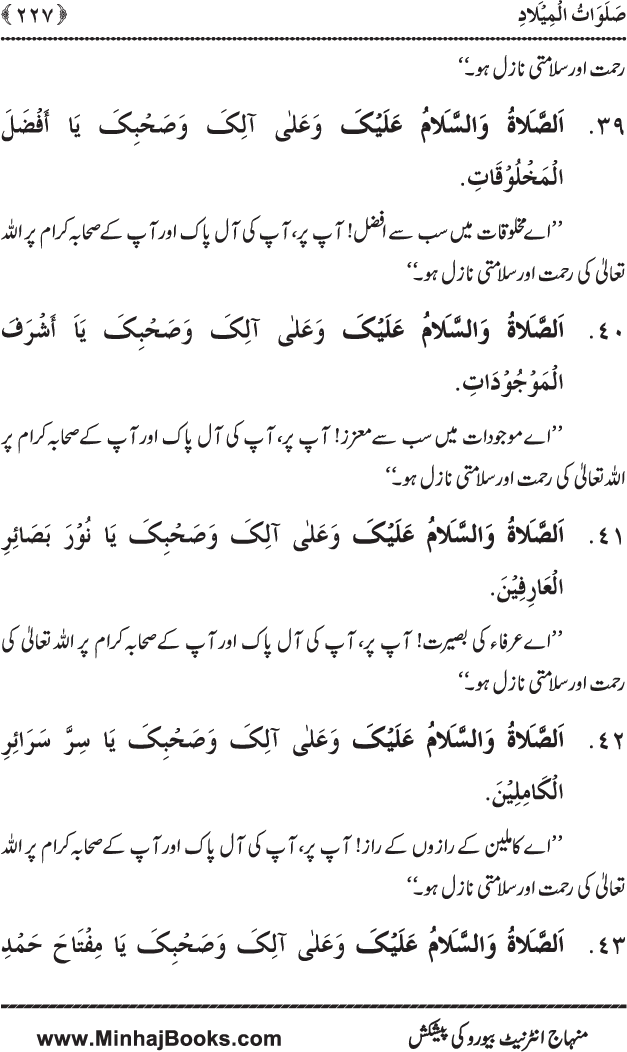 صَلَوَاتُ الْمِيْلَادِ ﴿٢٢٧﴾
رحمت اور سلامتی نازل ہو۔‘‘
٣٩. اَلصَّلَاةُ وَالسَّلَامُ عَلَيْکَ وَعَلٰی آلِکَ وَصَحْبِکَ يَا أَفْضَلَ
الْمَخْلُوْقَاتِ.
’’اے مخلوقات میں سب سے افضل! آپ پر، آپ کی آل پاک اور آپ کے صحابہ کرام پر اللہ
تعالیٰ کی رحمت اور سلامتی نازل ہو۔‘‘
٤٠. اَلصَّلَاةُ وَالسَّلَامُ عَلَيْکَ وَعَلٰی آلِکَ وَصَحْبِکَ يَاَ أَشْرَفَ
الْمَوْجُوْدَاتِ.
’’اے موجودات میں سب سے معزز! آپ پر، آپ کی آل پاک اور آپ کے صحابہ کرام پر
اللہ تعالیٰ کی رحمت اور سلامتی نازل ہو۔‘‘
٤١. اَلصَّلَاةُ وَالسَّلَامُ عَلَيْکَ وَعَلٰی آلِکَ وَصَحْبِکَ يَا نُوْرَ بَصَائِرِ
الْعَارِفِيْنَ.
’’اے عرفاء کی بصیرت! آپ پر، آپ کی آل پاک اور آپ کے صحابہ کرام پر اللہ تعالیٰ کی
رحمت اور سلامتی نازل ہو۔‘‘
٤٢. اَلصَّلَاةُ وَالسَّلَامُ عَلَيْکَ وَعَلٰی آلِکَ وَصَحْبِکَ يَا سِرَّ سَرَائِرِ
الْکَامِلِيْنَ.
’’اے کاملین کے رازوں کے راز! آپ پر، آپ کی آل پاک اور آپ کے صحابہ کرام پر اللہ
تعالیٰ کی رحمت اور سلامتی نازل ہو۔‘‘
٤٣. اَلصَّلَاةُ وَالسَّلَامُ عَلَيْکَ وَعَلٰی آلِکَ وَصَحْبِکَ يَا مِفْتَاحَ حَمْدِ
منہاج انٹرنیٹ بیورو کی پیشکش www.MinhajBooks.com